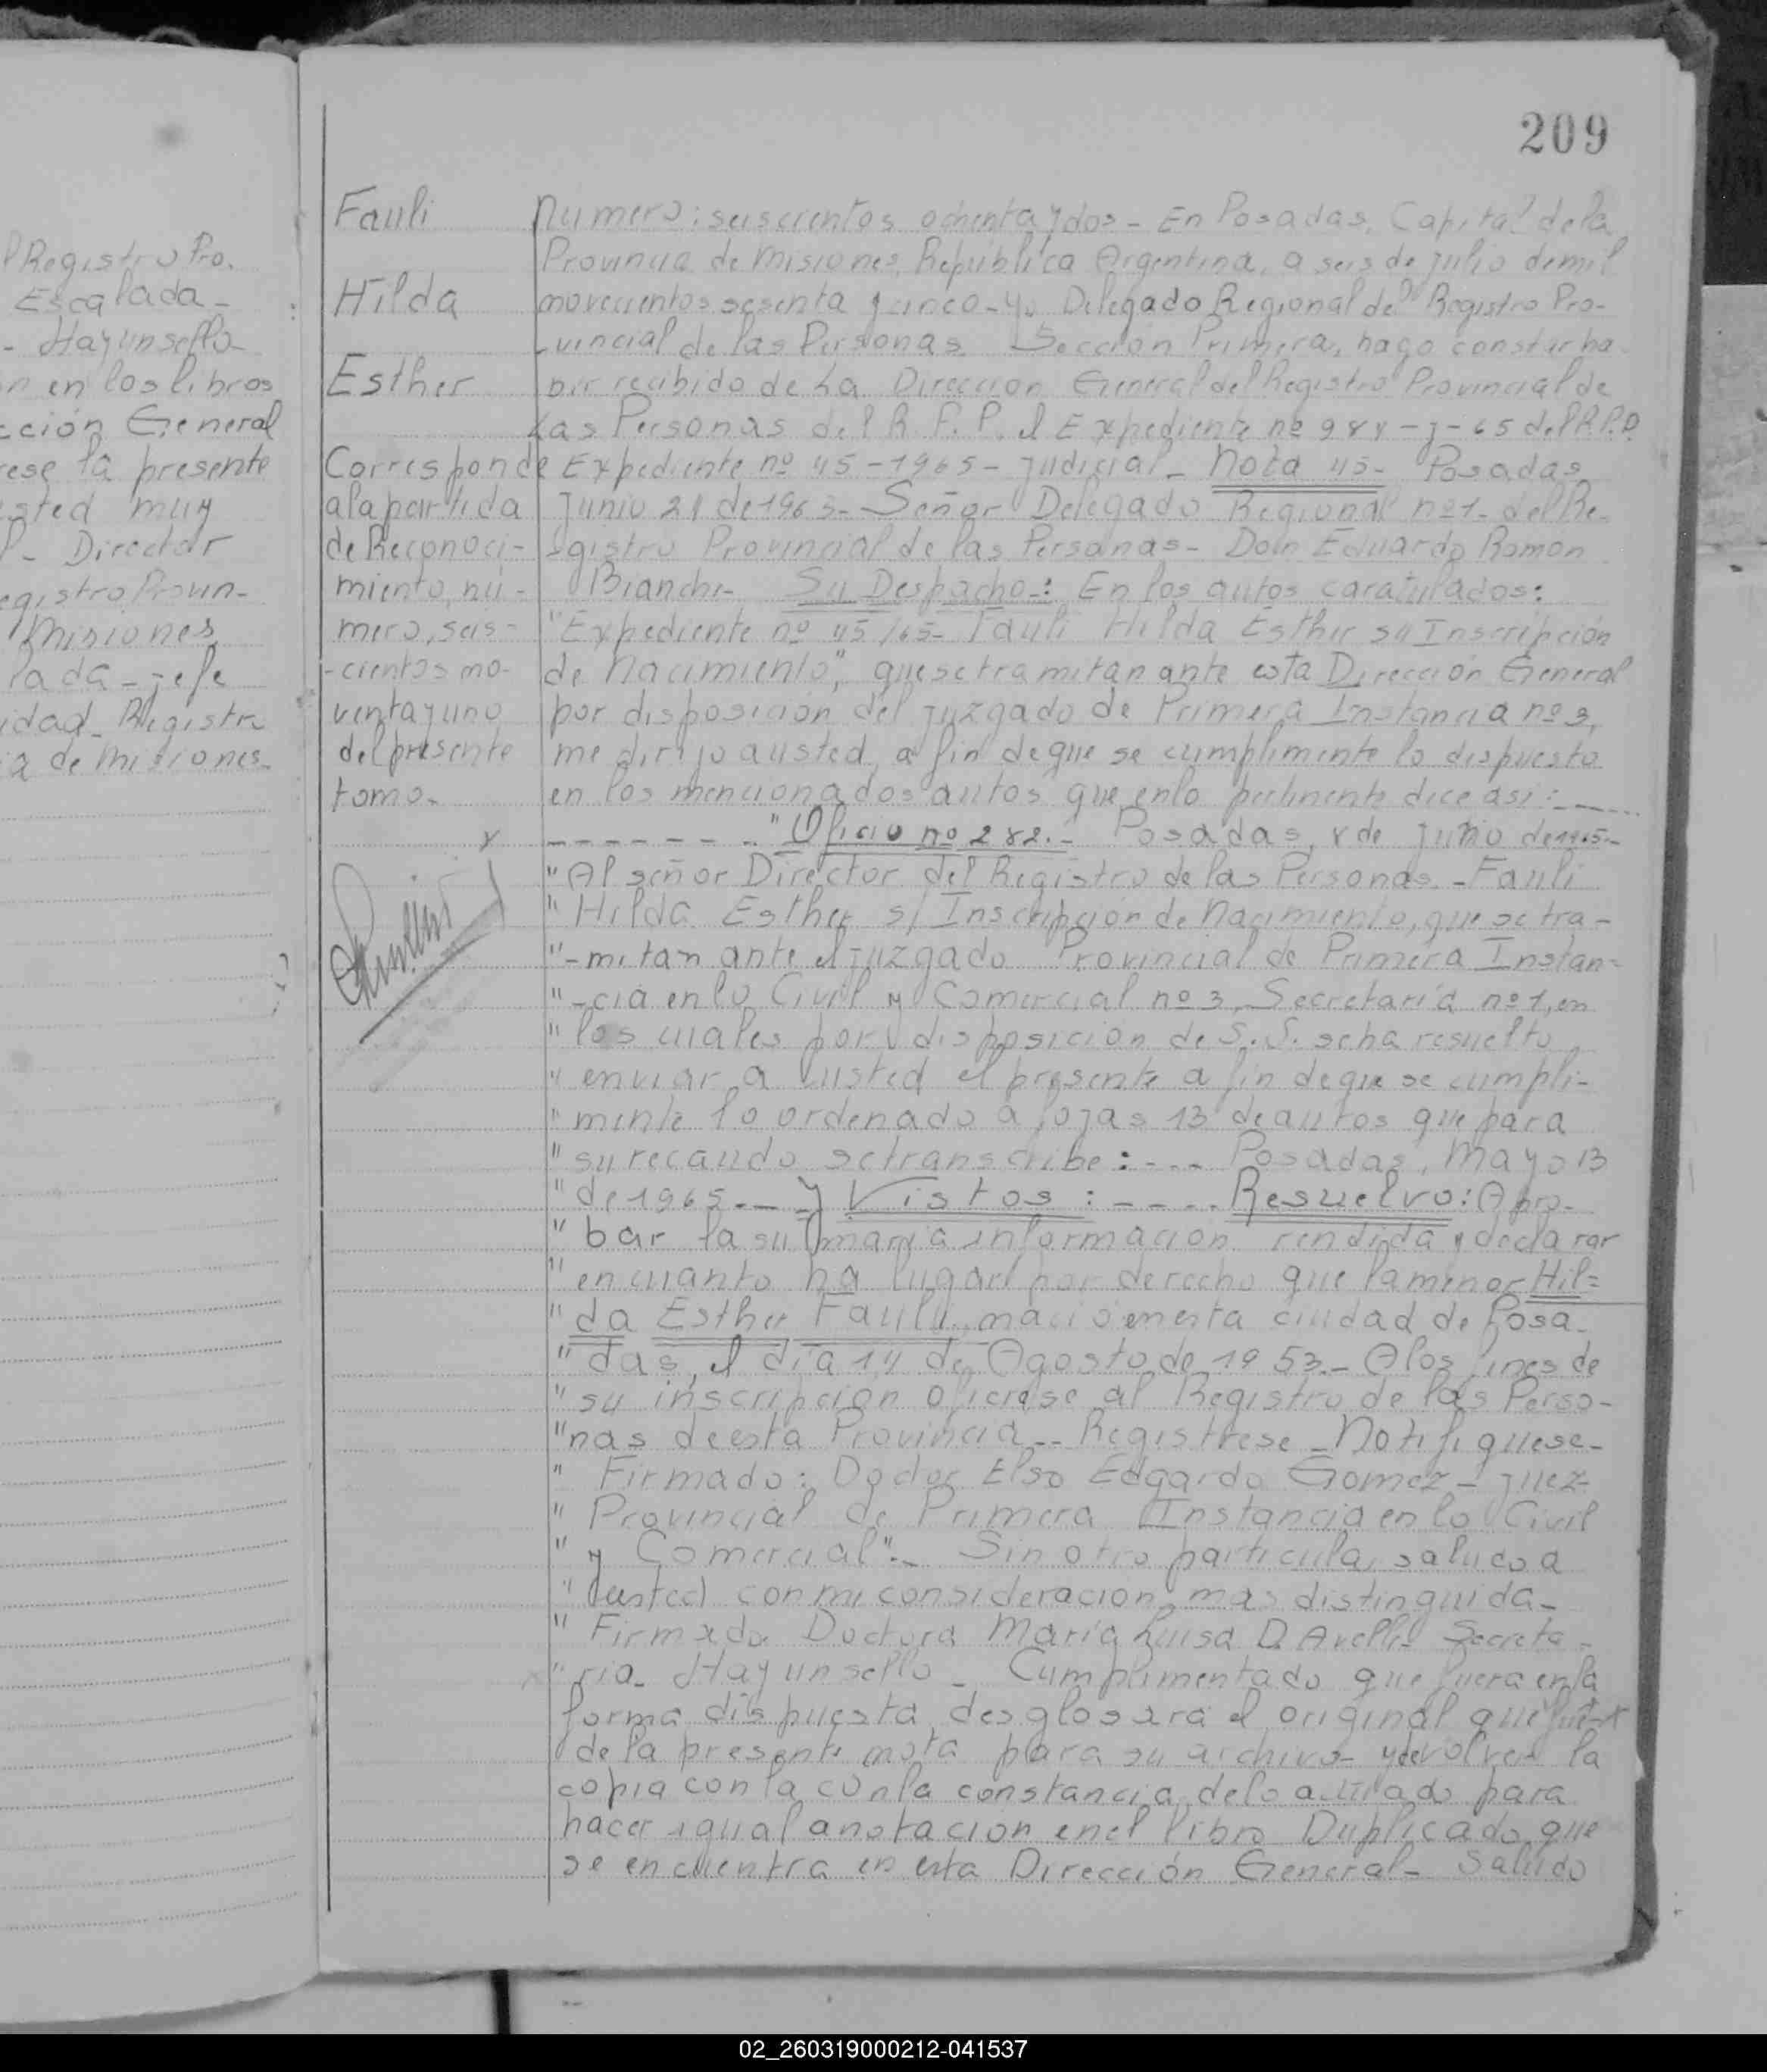 l Registro Pro.
Escalada-
- Hay un sello-
n en los libros
cción General
rese la presente
usted muy
l- Director
egistro Provin-
Misiones
lada - Jefe
idad Registra
ia de Misiones-
209
Fauli
Hilda
Esther
Corresponde
a la partida
de Reconoci-
miento, nú-
mero, seis-
-cientos no-
venta y uno
del presente
tomo.
Numero: seiscientos ochenta y dos - En Posadas, Capital de la
Provincia de Misiones, República Argentina, a seis de Julio de mil
novecientos sesenta y cinco - Yo Delegado Regional del Registro Pro-
-vincial de las Personas Sección Primera, hago constar ha
ber recibido de La Dirección General del Registro Provincial de
Las Personas del R. P. P. el Expediente nº 988-J-65 del R.P.P.
Expediente nº 45-1965- Judicial- Nota 45- Posadas
Junio 21 de 1965- Señor Delegado Regional nº 1- del Re-
-gistro Provincial de las Personas- Don Eduardo Ramon
Bianchi- Su Despacho-: En los autos caratulados:
"Expediente nº 45/65- Fauli Hilda Esther su Inscripción
de Nacimiento", que se tramitan ante esta Dirección General
por disposición del Juzgado de Primera Instancia nº 3,
me dirijo a usted, a fin de que se cumplimente lo dispuesto
en los mencionados autos que en lo pertinente dice así:-----
------- "Oficio nº 282.- Posadas, 8 de Junio de 1965-
"Al señor Director del Registro de las Personas - Fauli
" Hilda Esther s/ Inscripción de Nacimiento, que se tra-
"-mitan ante el Juzgado Provincial de Primera Instan-
"-cia en lo Civil y Comercial nº 3, Secretaría nº 1, en
" los cuales por disposición de S.S. se ha resuelto
" enviar a usted el presente a fin de que se cumpli-
" mente lo ordenado a fojas 13 de autos que para
" su recaudo se transcribe:--- Posadas, Mayo 13
" de 1965.-- Y Vistos:---- Resuelvo: Apro-
" bar la sumaria información rendida y declarar
" en cuanto ha lugar por derecho que la menor Hil=
" da Esther Fauli, nació en esta ciudad de Posa-
" das, el día 14 de Agosto de 1953.- A los fines de
" su inscripción oficiese al Registro de las Perso-
"nas de esta Provincia -- Registrese - Notifiquese-
" Firmado: Doctor Elso Edgardo Gomez - Juez-
" Provincial de Primera Instancia en lo Civil
" y Comercial".- Sin otro particular, saludo a
" usted con mi consideracion mas distinguida-
" Firmado Doctora María Luisa D. Avelli- Secreta-
" ria- Hay un sello - Cumplimentado que fuera en la
forma dispuesta desglosará el original que
de la presente nota para su archivo- y devolver la
copia con la con la constancia de lo actuado para
hacer igual anotacion en el libro Duplicado que
se encuentra en esta Dirección General- Saludo
02_260319000212-041537